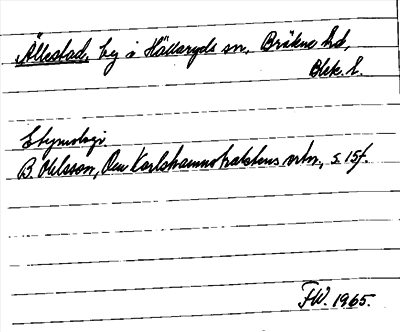 Ällestad, by i Hällaryds sn, Bräkne hd,
Blek. l.
Etymologi
B. Ohlsson, Om Karlshamnstraktens ortn., s. 15f.
FW. 1965.